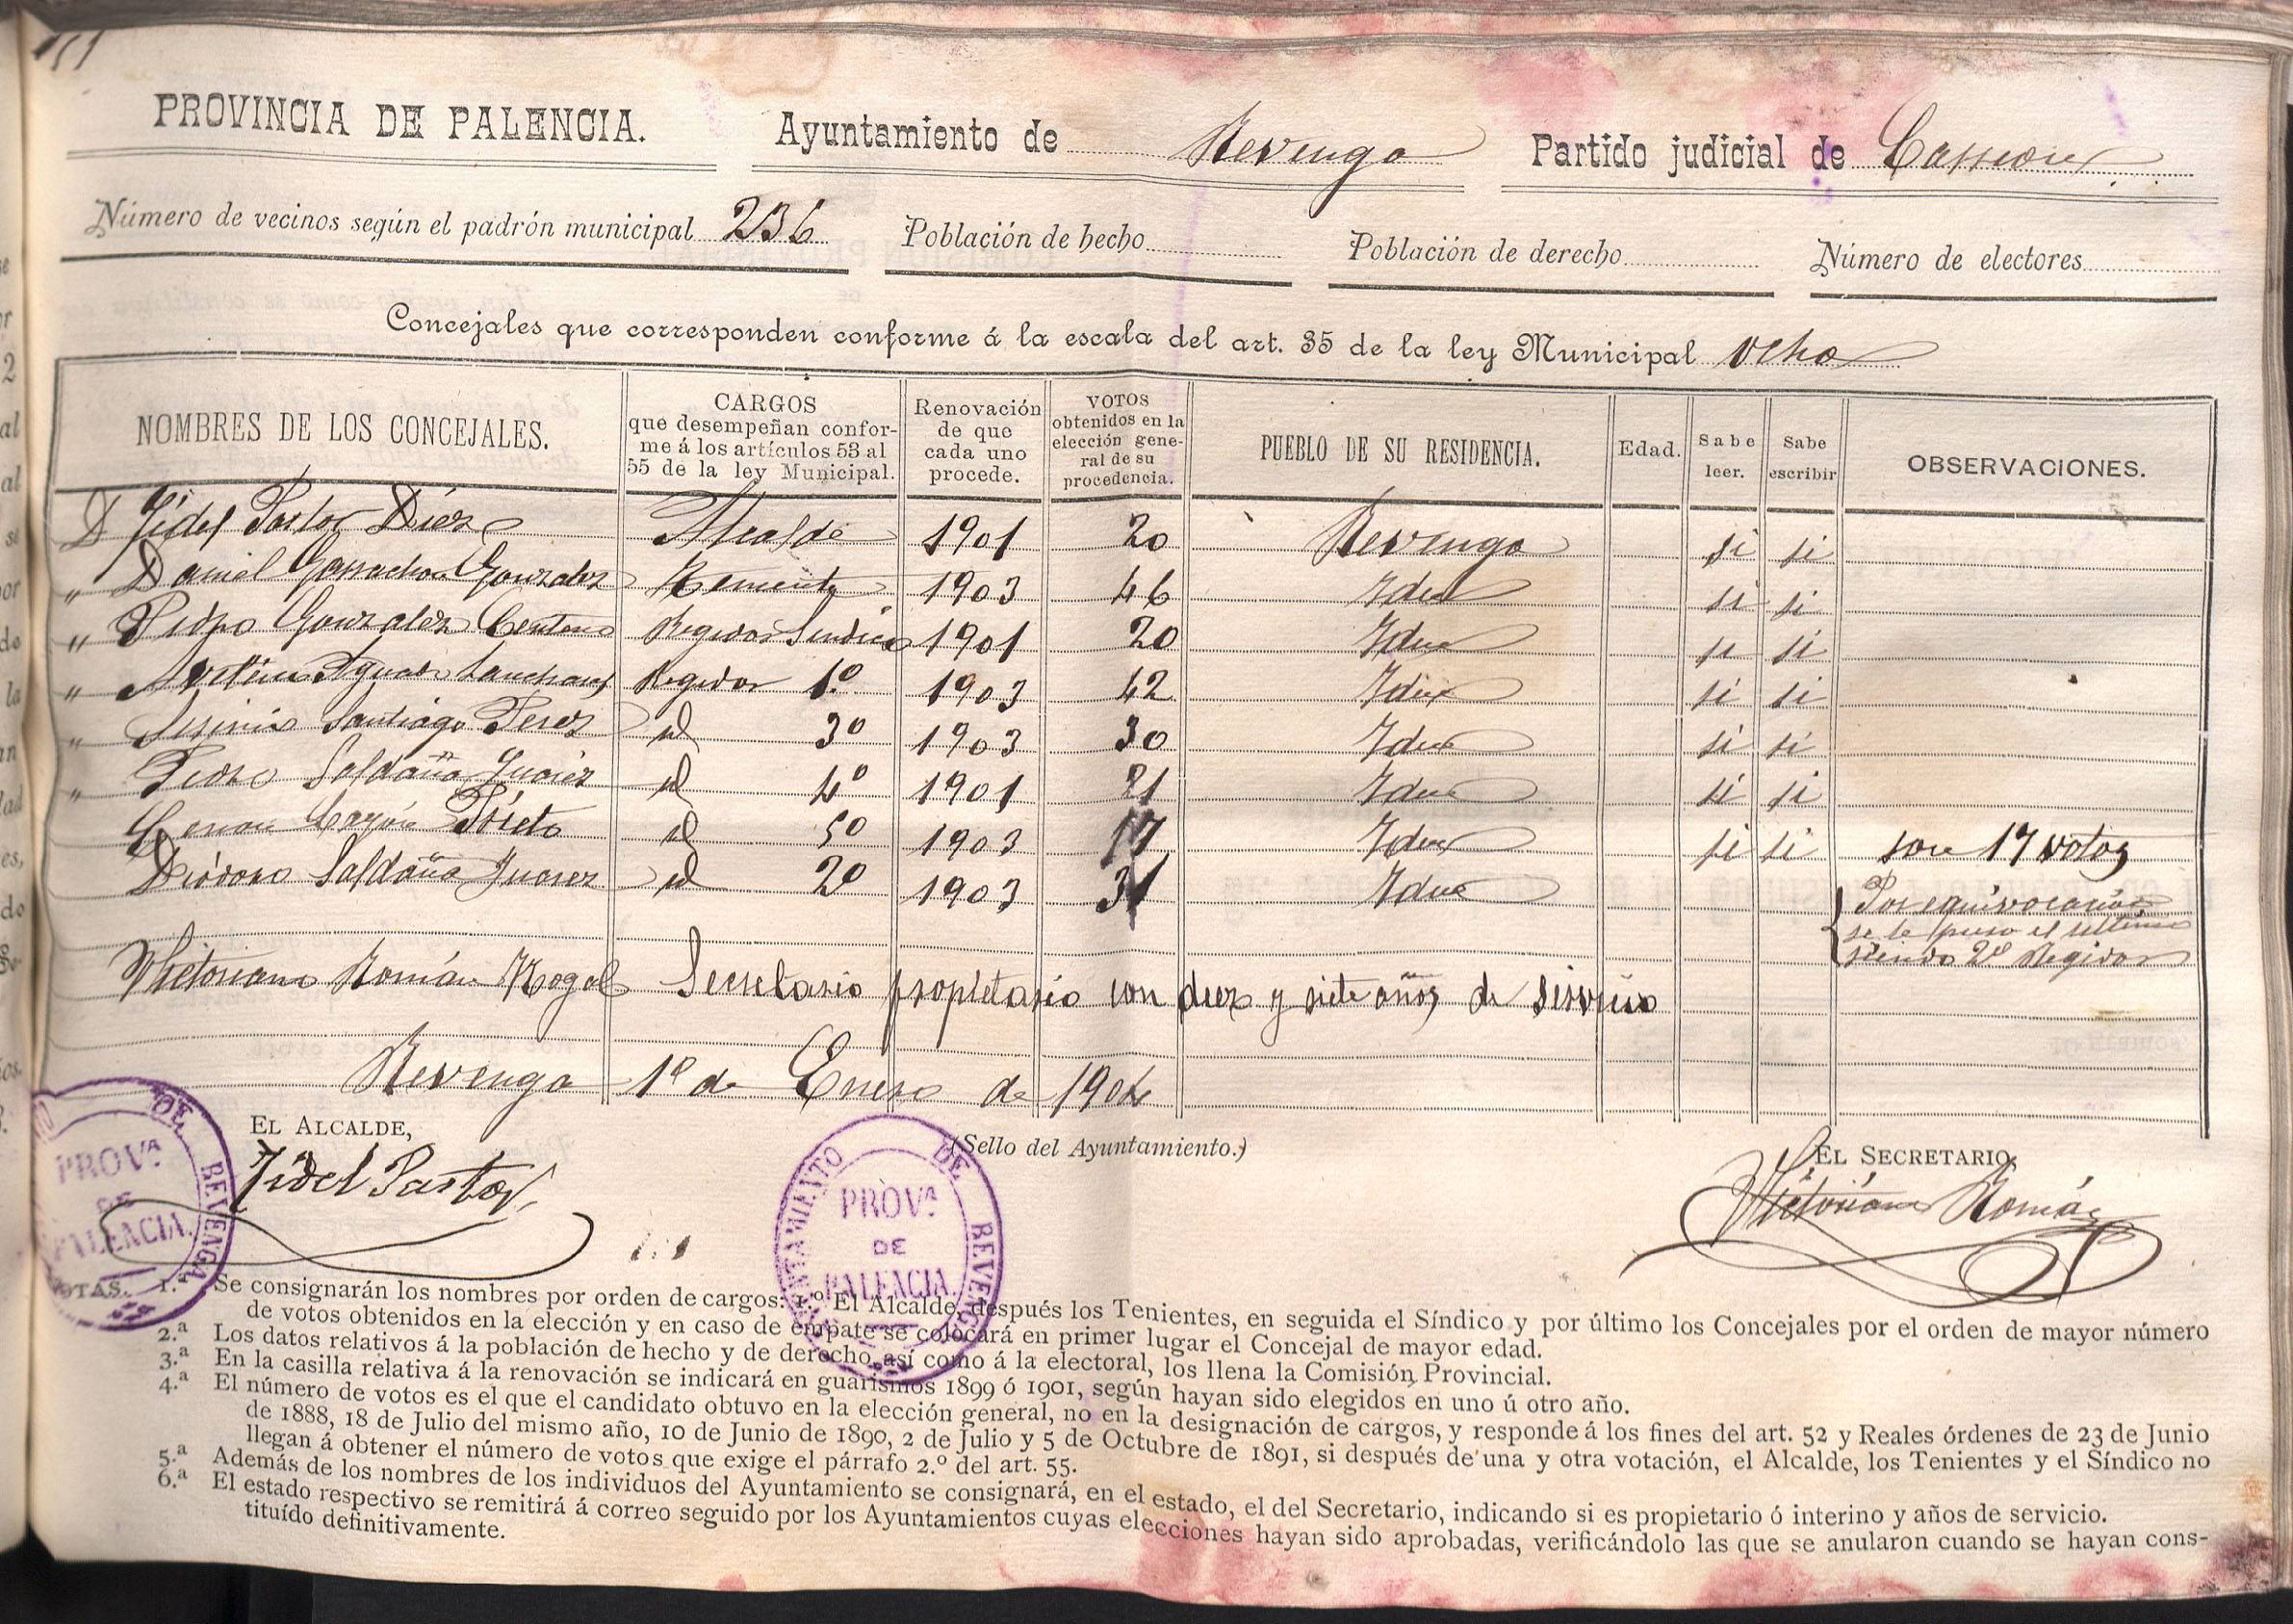 PROVINCIA DE PALENCIA. Ayuntamiento de Revenga Partido judicial de Carrion
Número de vecinos según el padrón municipal 236 Población de hecho Población de derecho Número de electores
Concejales que corresponden conforme á la escala del art. 35 de la ley Municipal ocho
NOMBRES DE LOS CONCEJALES. CARGOS que desempeñan conforme á los artículos 53 al 55 de la ley Municipal. Renovación de que cada uno procede. VOTOS obtenidos en la elección general de su procedencia. PUEBLO DE SU RESIDENCIA. Edad. Sabe leer. Sabe escribir OBSERVACIONES.
D Fidel Pastor Diez Alcalde 1901 20 Revenga si si
" Daniel Garrachon Gonzalez Teniente 1903 46 Idem si si
" Pedro Gonzalez Centeno Regidor Sindico 1901 20 Idem si si
" Avelino Aguado Regidor 1º 1903 42 Idem si si
" Sisinio Santiago Perez id 3º 1903 30 Idem si si
" Pedro Saldaña Juarez id 4º 1901 21 Idem si si
Cayón Prieto id 5º 1903 17 Idem si si son 17 votos
Diódoro Saldaña Juarez id 2º 1903 31 Idem Por equivocación
se le puso el ultimo
siendo 2º Regidor
Victoriano Román Mogal Secretario propietario con diez y siete años de servicio
Revenga 1º de Enero de 1904
EL ALCALDE, (Sello del Ayuntamiento.) EL SECRETARIO,
Fidel Pastor Victoriano Román
DE REVENGA
PROVª DE PALENCIA.
AYUNTAMIENTO DE REVENGA
PROVª DE PALENCIA.
NOTAS. 1.ª Se consignarán los nombres por orden de cargos: 1.º El Alcalde, después los Tenientes, en seguida el Síndico y por último los Concejales por el orden de mayor número
de votos obtenidos en la elección y en caso de empate se colocará en primer lugar el Concejal de mayor edad.
2.ª Los datos relativos á la población de hecho y de derecho, así como á la electoral, los llena la Comisión Provincial.
3.ª En la casilla relativa á la renovación se indicará en guarismos 1899 ó 1901, según hayan sido elegidos en uno ú otro año.
4.ª El número de votos es el que el candidato obtuvo en la elección general, no en la designación de cargos, y responde á los fines del art. 52 y Reales órdenes de 23 de Junio
de 1888, 18 de Julio del mismo año, 10 de Junio de 1890, 2 de Julio y 5 de Octubre de 1891, si después de una y otra votación, el Alcalde, los Tenientes y el Síndico no
llegan á obtener el número de votos que exige el párrafo 2.º del art. 55.
5.ª Además de los nombres de los individuos del Ayuntamiento se consignará, en el estado, el del Secretario, indicando si es propietario ó interino y años de servicio.
6.ª El estado respectivo se remitirá á correo seguido por los Ayuntamientos cuyas elecciones hayan sido aprobadas, verificándolo las que se anularon cuando se hayan cons-
tituído definitivamente.